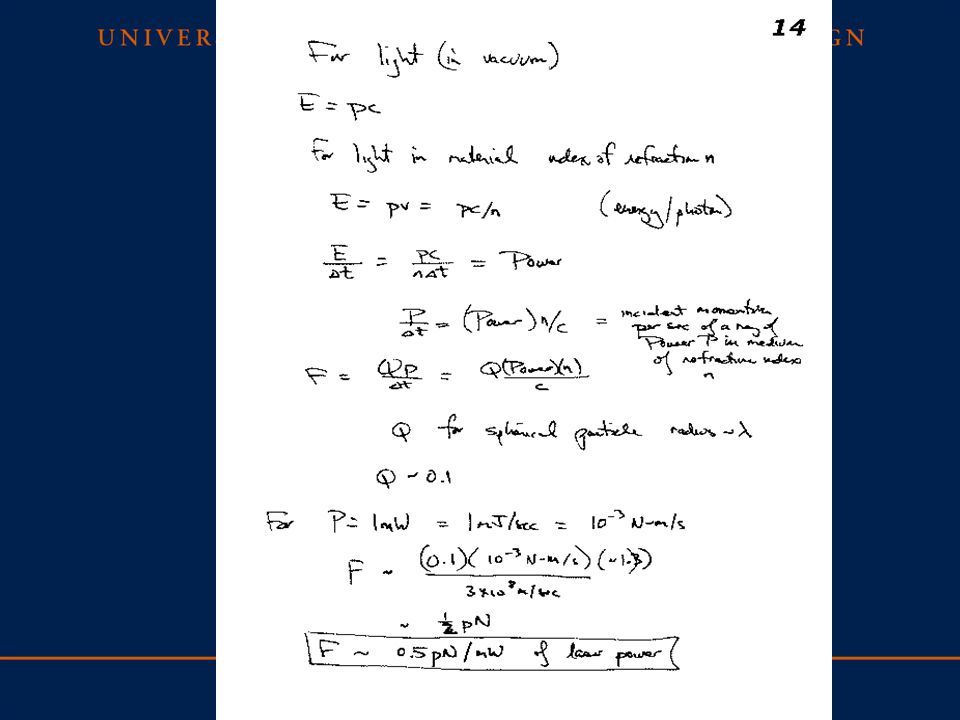 14
UNIVER GN
For light (in vacuum)
E = pc
For light in material index of refraction n
E = pv = pc/n (energy/photon)
E/Δt = pc/nΔt = Power
P/Δt = (Power) n/c = incident momentum
per sec of a ray of
Power P in medium
of refractive index
n
F = Qp/Δt = Q(Power)(n)/c
Q for spherical particle radius ~ λ
Q ~ 0.1
For P = 1mW = 1mJ/sec = 10⁻³ N-m/s
F ~ (0.1)(10⁻³ N-m/s)(~1.3)/3×10⁸ m/sec
~ ½ pN
F ~ 0.5 pN/mW of laser power